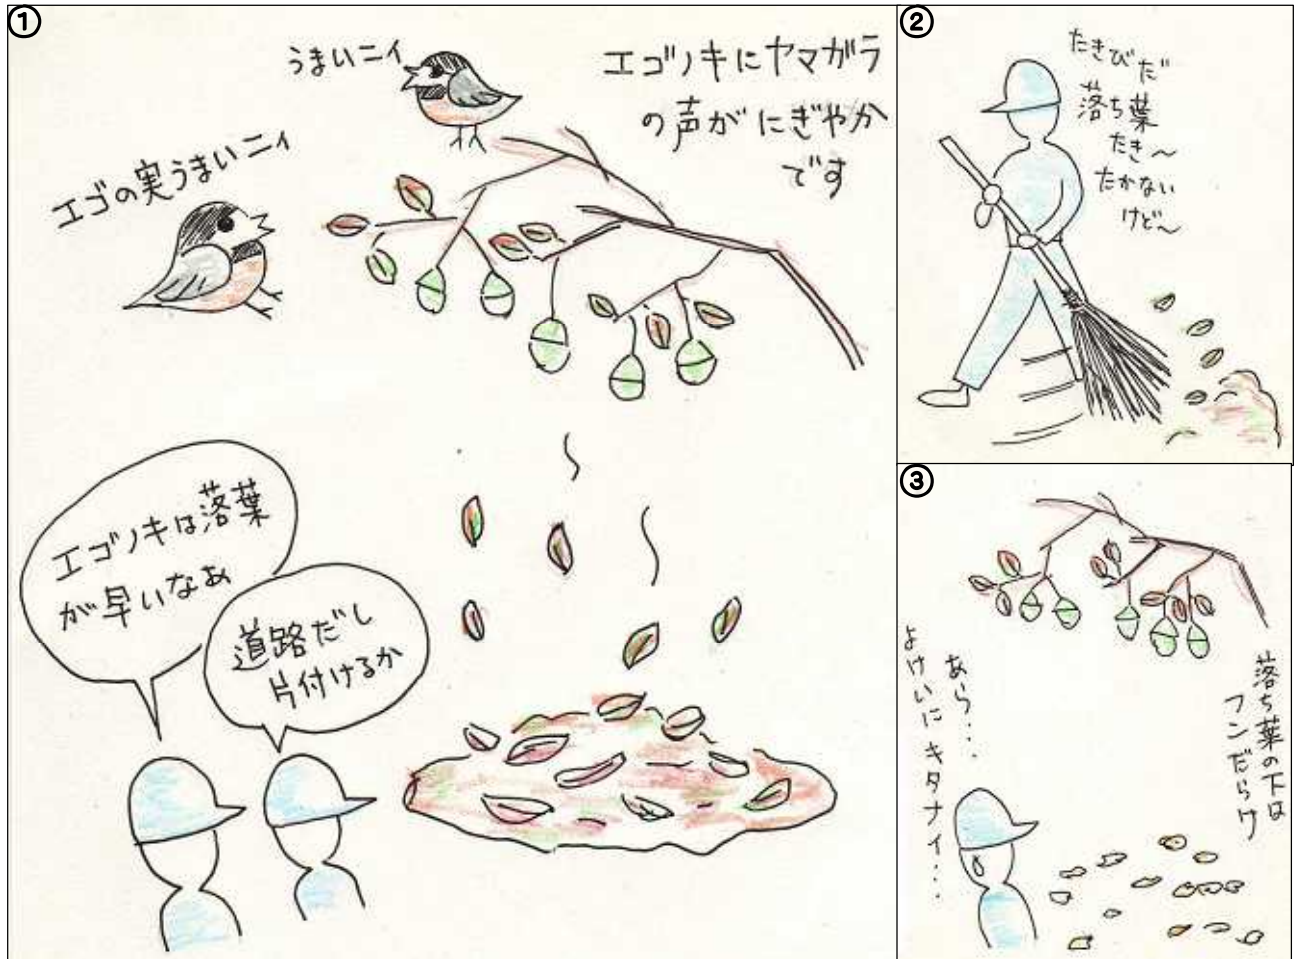 ①
エゴノキにヤマガラ
の声がにぎやか
です
うまいニィ
エゴの実うまいニィ
エゴノキは落葉
が早いなぁ
道路だし
片付けるか
②
たきびだ
落ち葉
たき～
たかない
けど～
③
落ち葉の下は
フンだらけ
あら・・・
よけいにキタナイ・・・